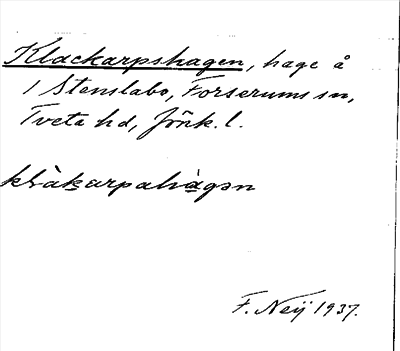 Klackarpshagen, hage å
1 Stenslabo, Forserums sn,
Tveta hd, Jönk. l.
klàkarpahàgən
F. Neij 1937.